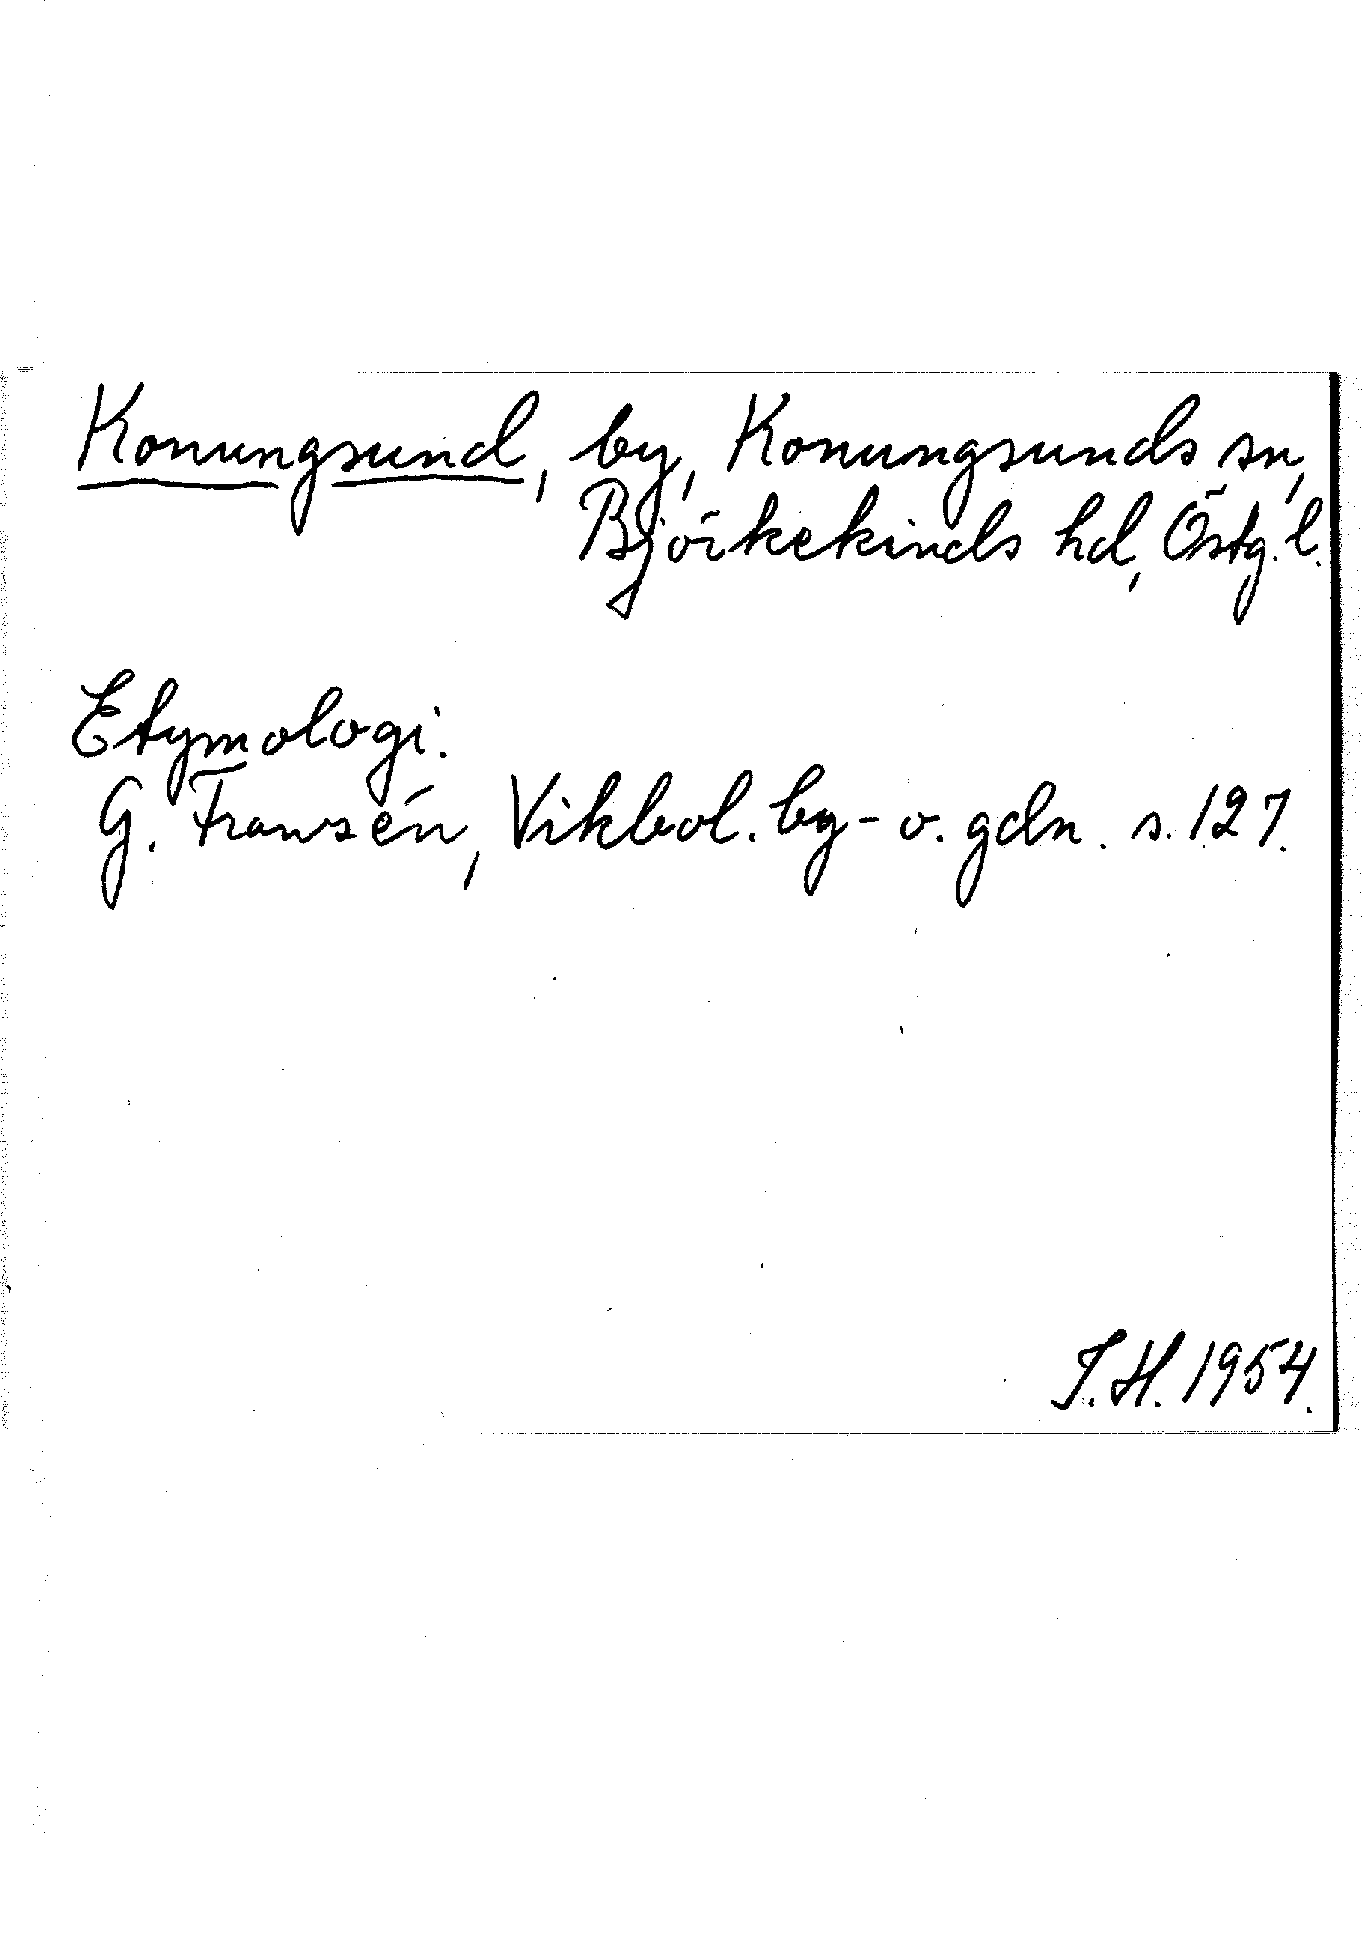 Konungsund, by, Konungsunds sn,
Björkekinds hd, Östg. l.
Etymologi.
G. Franzén, Vikbol. by- o. gdn. s. 127.
I.H. 1954.